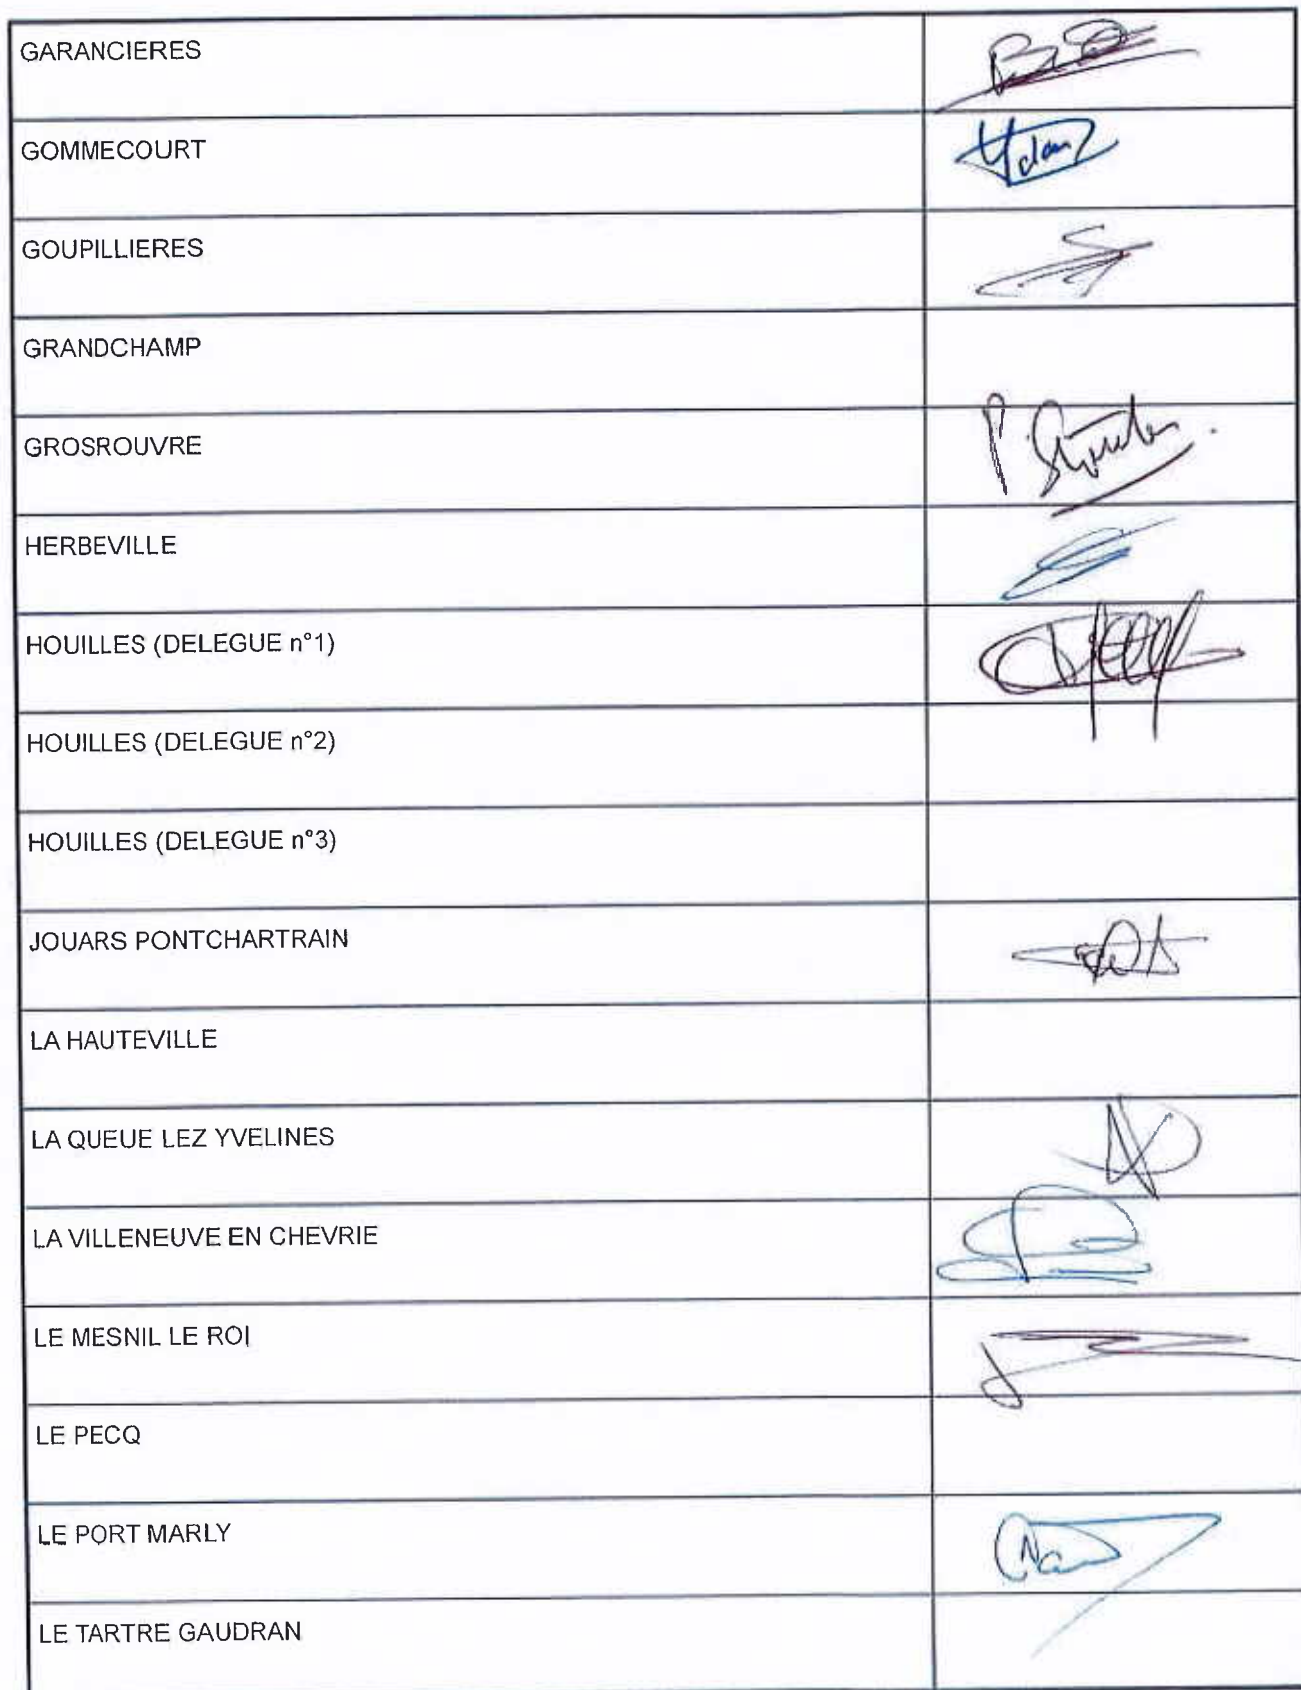 GARANCIERES
GOMMECOURT
GOUPILLIERES
GRANDCHAMP
GROSROUVRE
HERBEVILLE
HOUILLES (DELEGUE n°1)
HOUILLES (DELEGUE n°2)
HOUILLES (DELEGUE n°3)
JOUARS PONTCHARTRAIN
LA HAUTEVILLE
LA QUEUE LEZ YVELINES
LA VILLENEUVE EN CHEVRIE
LE MESNIL LE ROI
LE PECQ
LE PORT MARLY
LE TARTRE GAUDRAN